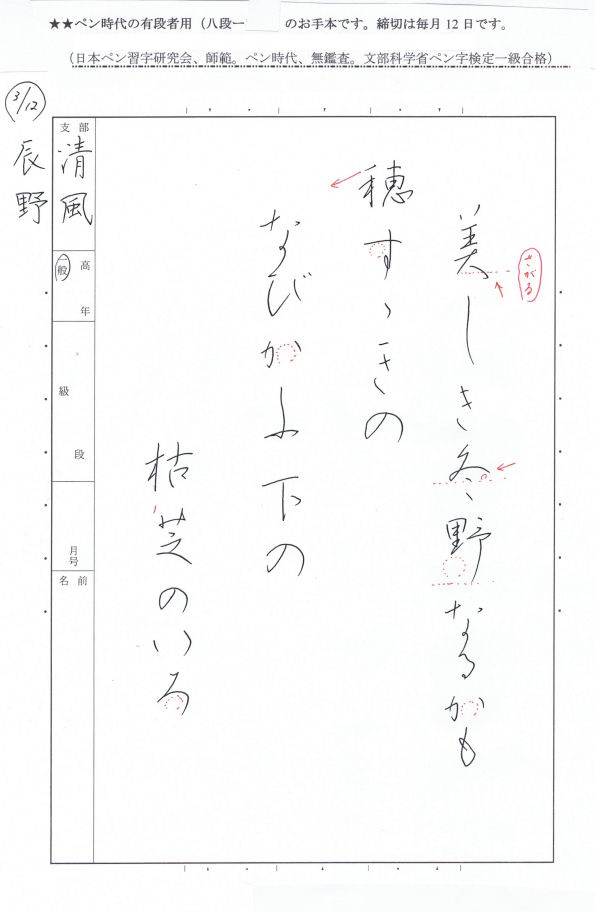 ★★ペン時代の有段者用（八段一 のお手本です。締切は毎月12日です。
（日本ペン習字研究会、師範。ペン時代、無鑑査。文部科学省ペン字検定一級合格）
3/12
辰野
支部
清風
高年
一般
級段
月号
名前
さがる
美しき冬野なるかも
穂すゝきの
なびかふ下の
枯芝のいろ